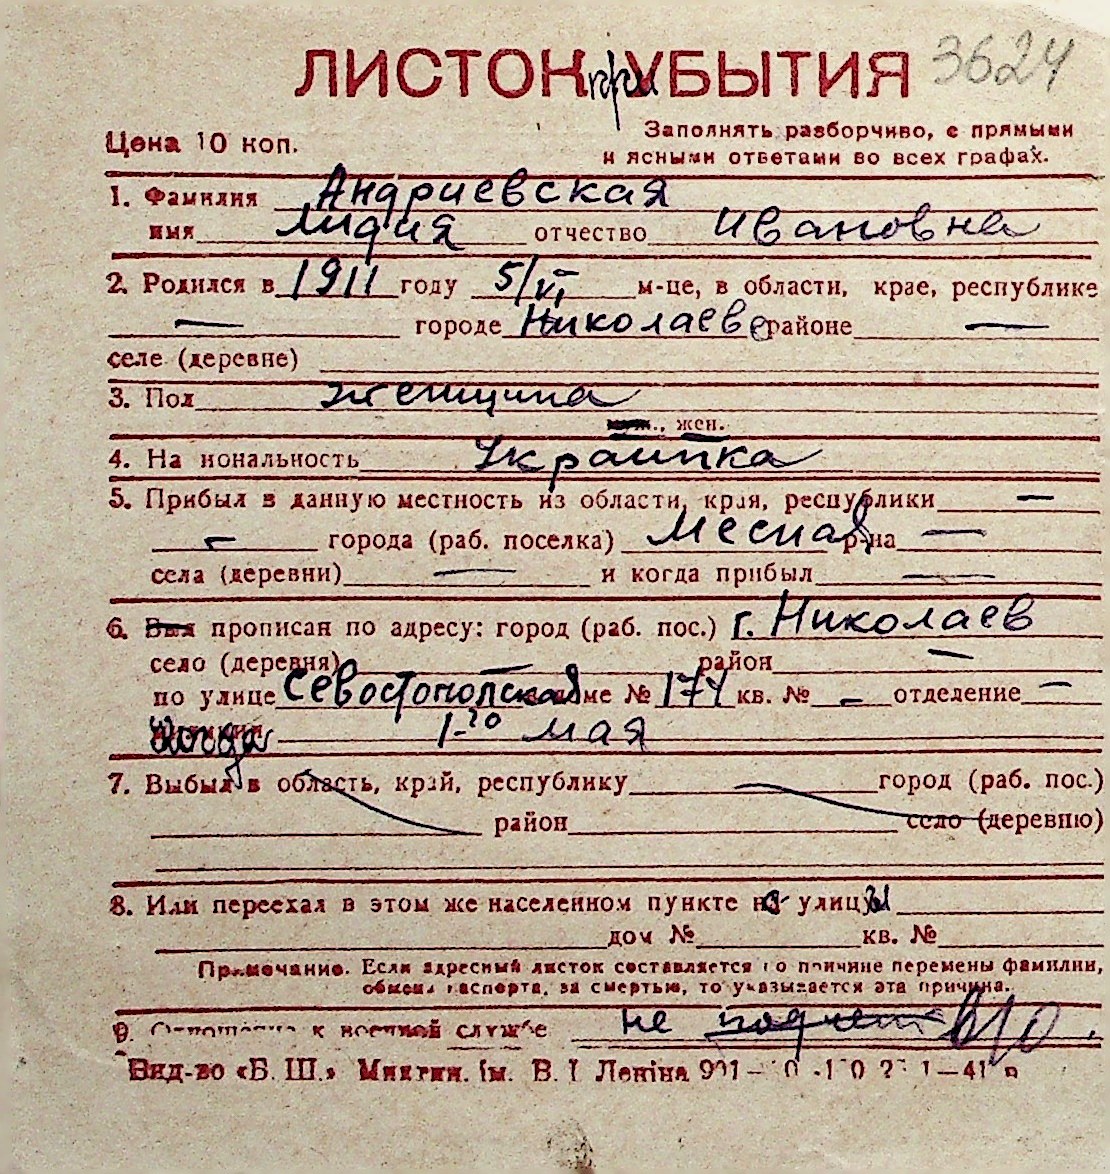 ЛИСТОК при УБЫТИЯ 3624
Цена 10 коп.
Заполнять разборчиво, с прямыми
и ясными ответами во всех графах.
1. Фамилия Андриевская
имя Лидия отчество Ивановна
2. Родился в 1911 году 5/VI м-це, в области, крае, республике
— городе Николаеве районе —
селе (деревне)
3. Пол женщина
муж., жен.
4. На иональность Украинка
5. Прибыл в данную местность из области, края, республики —
— города (раб. поселка) Месная р-на —
села (деревни) — и когда прибыл —
6. Был прописан по адресу: город (раб. пос.) г. Николаев
село (деревня) — район —
по улице Севостопольская доме № 174 кв. № — отделение —
1-го мая
7. Выбыл в область, край, республику город (раб. пос.)
район село (деревню)
8. Или переехал в этом же населенном пункте с улицы
дом № кв. №
Примечание. Если адресный листок составляется по причине перемены фамилии,
обмена паспорта, за смертью, то указывается эта причина.
9. Отношение к военной службе не подлеж в/о.
Вид-во «Б. Ш.» Миктип. ім. В. І Леніна